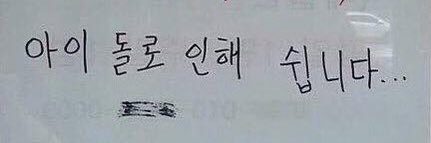 아이 돌로 인해 쉽니다...